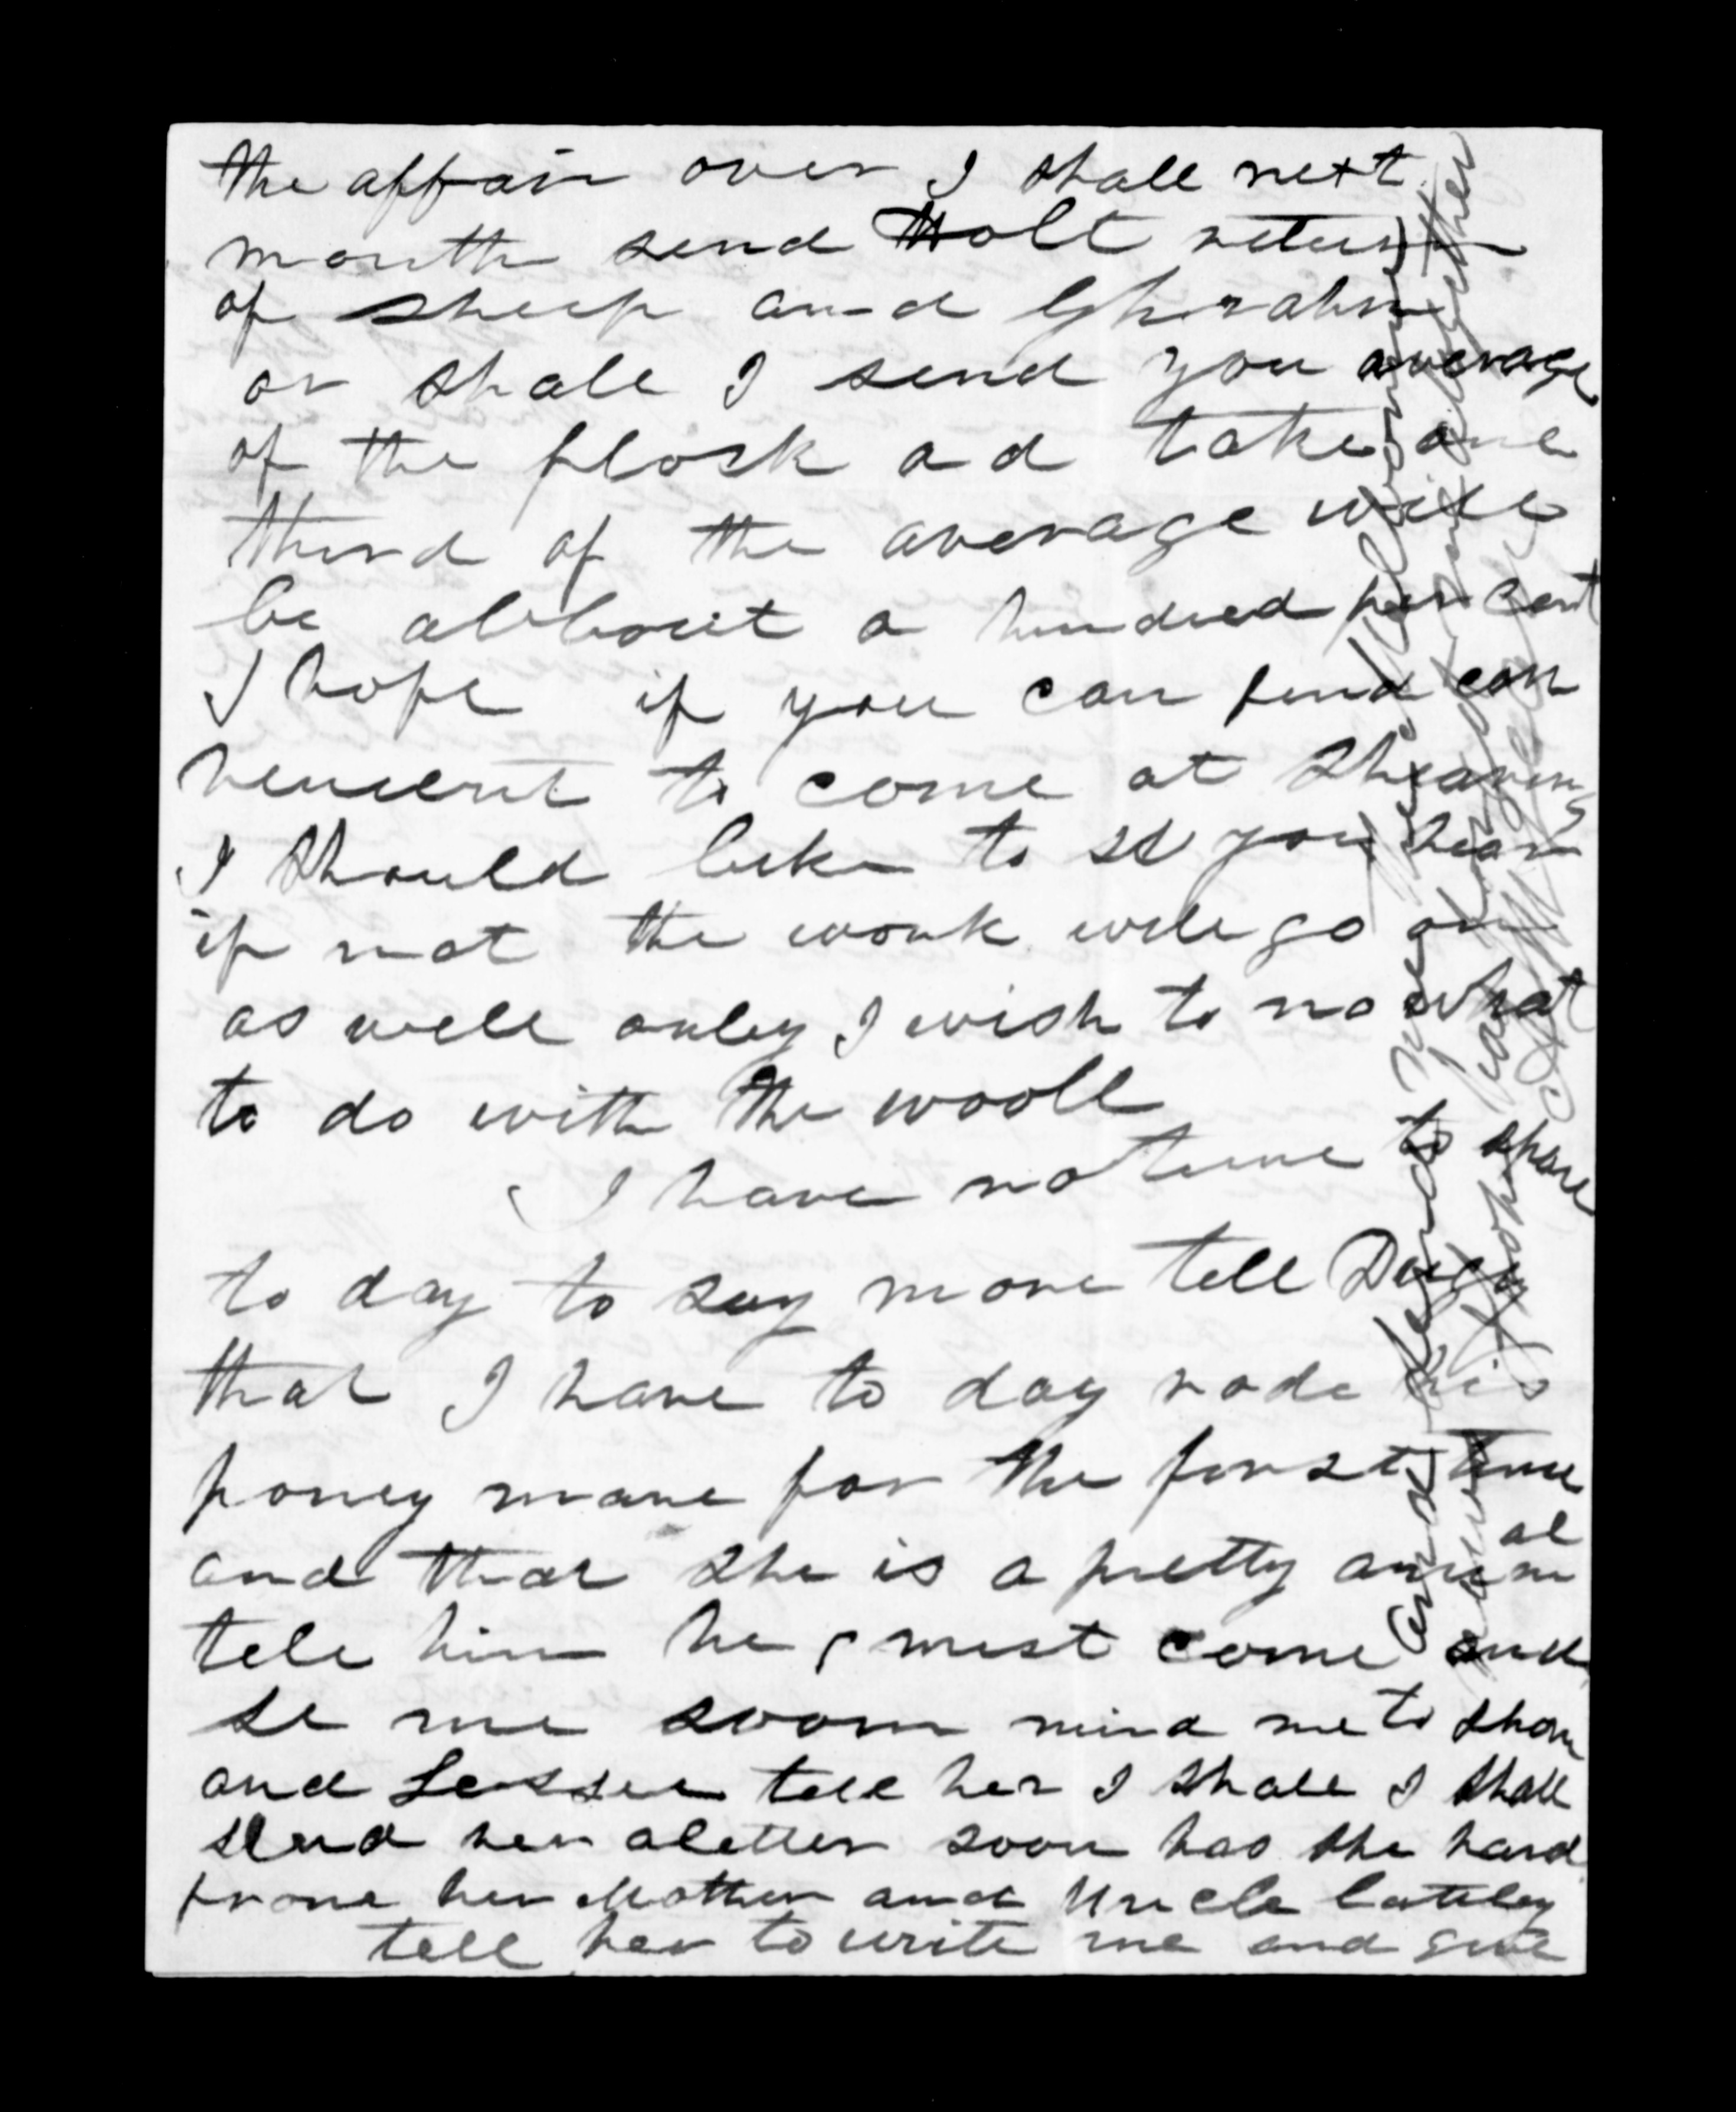 the affair over I shall next
month send Holt return
of sheep and Ghrahm
or shall I send you average
of the flock ad take one
third of the average will
be abbout a hundred per cent
I hope if you can find con
venient to come at Shearing
I should like to se you hear
if not the work will go on
as well onley I wish to no what
to do with the wooll
I have no time to spare
to day to say more tell
that I have to day rode his
poney mare for the first time
and that she is a pretty animal
tell him he must come and
se me soon mind me to them
and Lessee tell her I shall I shall
send her a letter soon has she hard
frome her Mother and Uncle lateley
tell her to write me and give
and kinds to
altogether